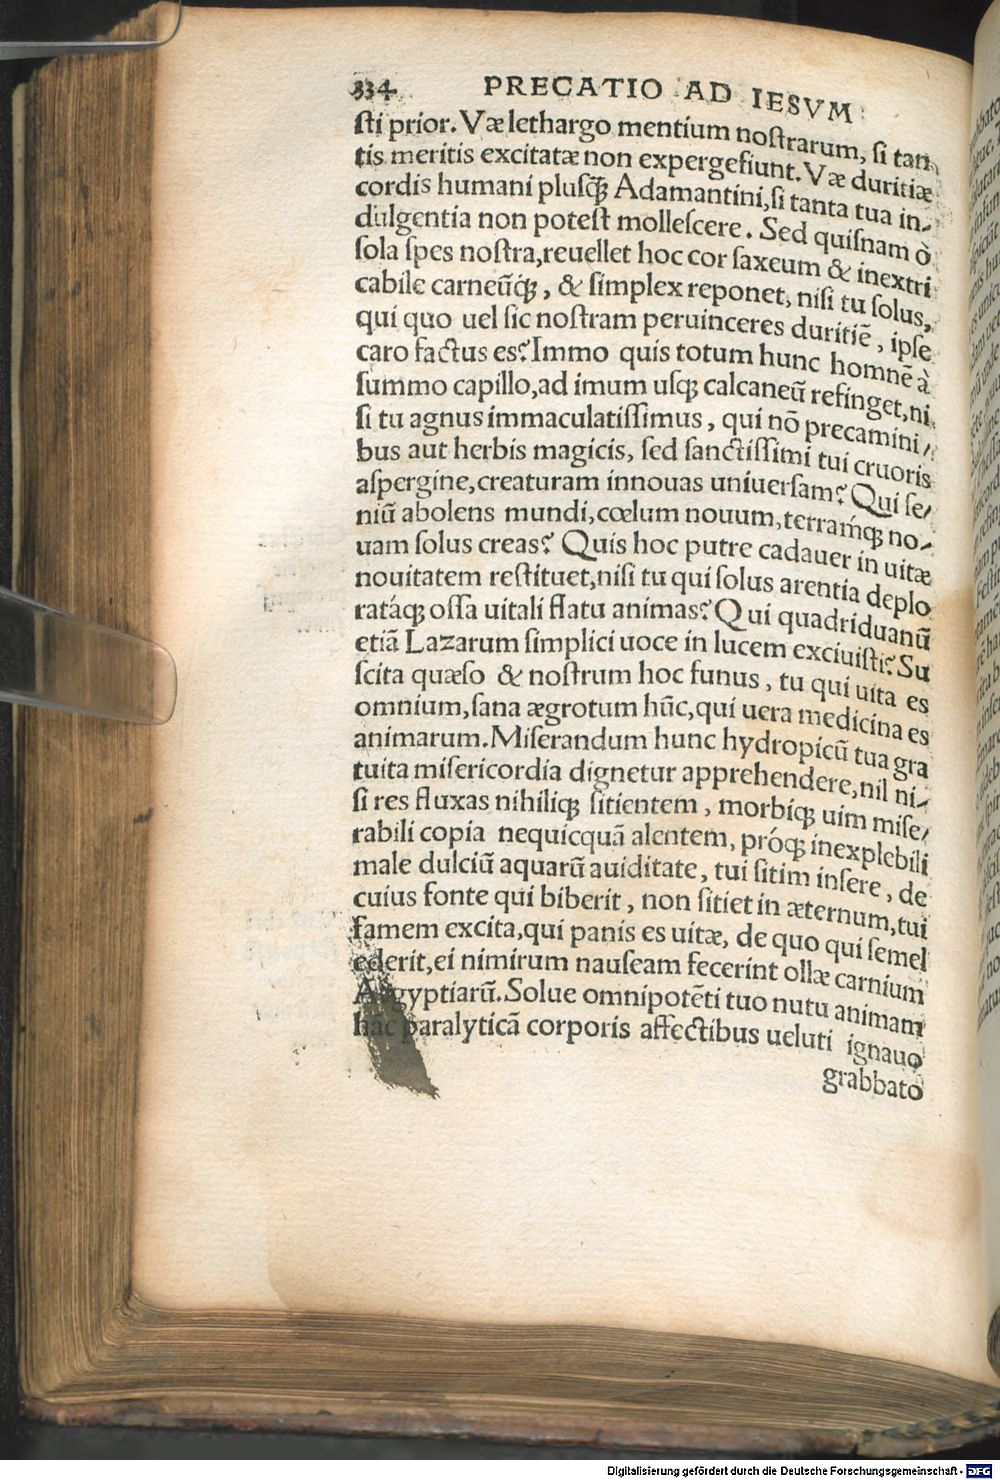 334 PRECATIO AD IESVM
ſti prior. Væ lethargo mentium noſtrarum, ſi tan
tis meritis excitatæ non expergefiunt. Væ duritiæ
cordis humani pluſꝗ̃ Adamantini, ſi tanta tua in⸗
dulgentia non poteſt molleſcere. Sed quiſnam ò
ſola ſpes noſtra, reuellet hoc cor ſaxeum & inextri
cabile carneũꝗ́, & ſimplex reponet, niſi tu ſolus,
qui quo uel ſic noſtram peruinceres duritiẽ, ipſe
caro factus es? Immo quis totum hunc homnẽ à
ſummo capillo, ad imum uſꝗ calcaneũ refinget, ni
ſi tu agnus immaculatiſſimus, qui nõ precamini⸗
bus aut herbis magicis, ſed ſanctiſſimi tui cruoris
aſpergine, creaturam innouas uniuerſam? Qui ſe⸗
niũ abolens mundi, cœlum nouum, terraḿꝗ no⸗
uam ſolus creas? Quis hoc putre cadauer in uitæ
nouitatem reſtituet, niſi tu qui ſolus arentia deplo
ratáꝗ oſſa uitali flatu animas? Qui quadriduanũ
etiã Lazarum ſimplici uoce in lucem exciuiſti? Su
ſcita quæſo & noſtrum hoc funus, tu qui uita es
omnium, ſana ægrotum hũc, qui uera medicina es
animarum. Miſerandum hunc hydropicũ tua gra
tuita miſericordia dignetur apprehendere, nil ni⸗
ſi res fluxas nihiliꝗ ſitientem, morbiꝗ uim miſe⸗
rabili copia nequicquã alentem, próꝗ inexplebili
male dulciũ aquarũ auiditate, tui ſitim inſere, de
cuius fonte qui biberit, non ſitiet in æternum, tui
famem excita, qui panis es uitæ, de quo qui ſemel
ederit, ei nimirum nauſeam fecerint ollæ carnium
Aegyptiarũ. Solue omnipotẽti tuo nutu animam
hãc paralyticã corporis affectibus ueluti ignauo
grabbato
Digitalisierung gefördert durch die Deutsche Forschungsgemeinschaft - DFG